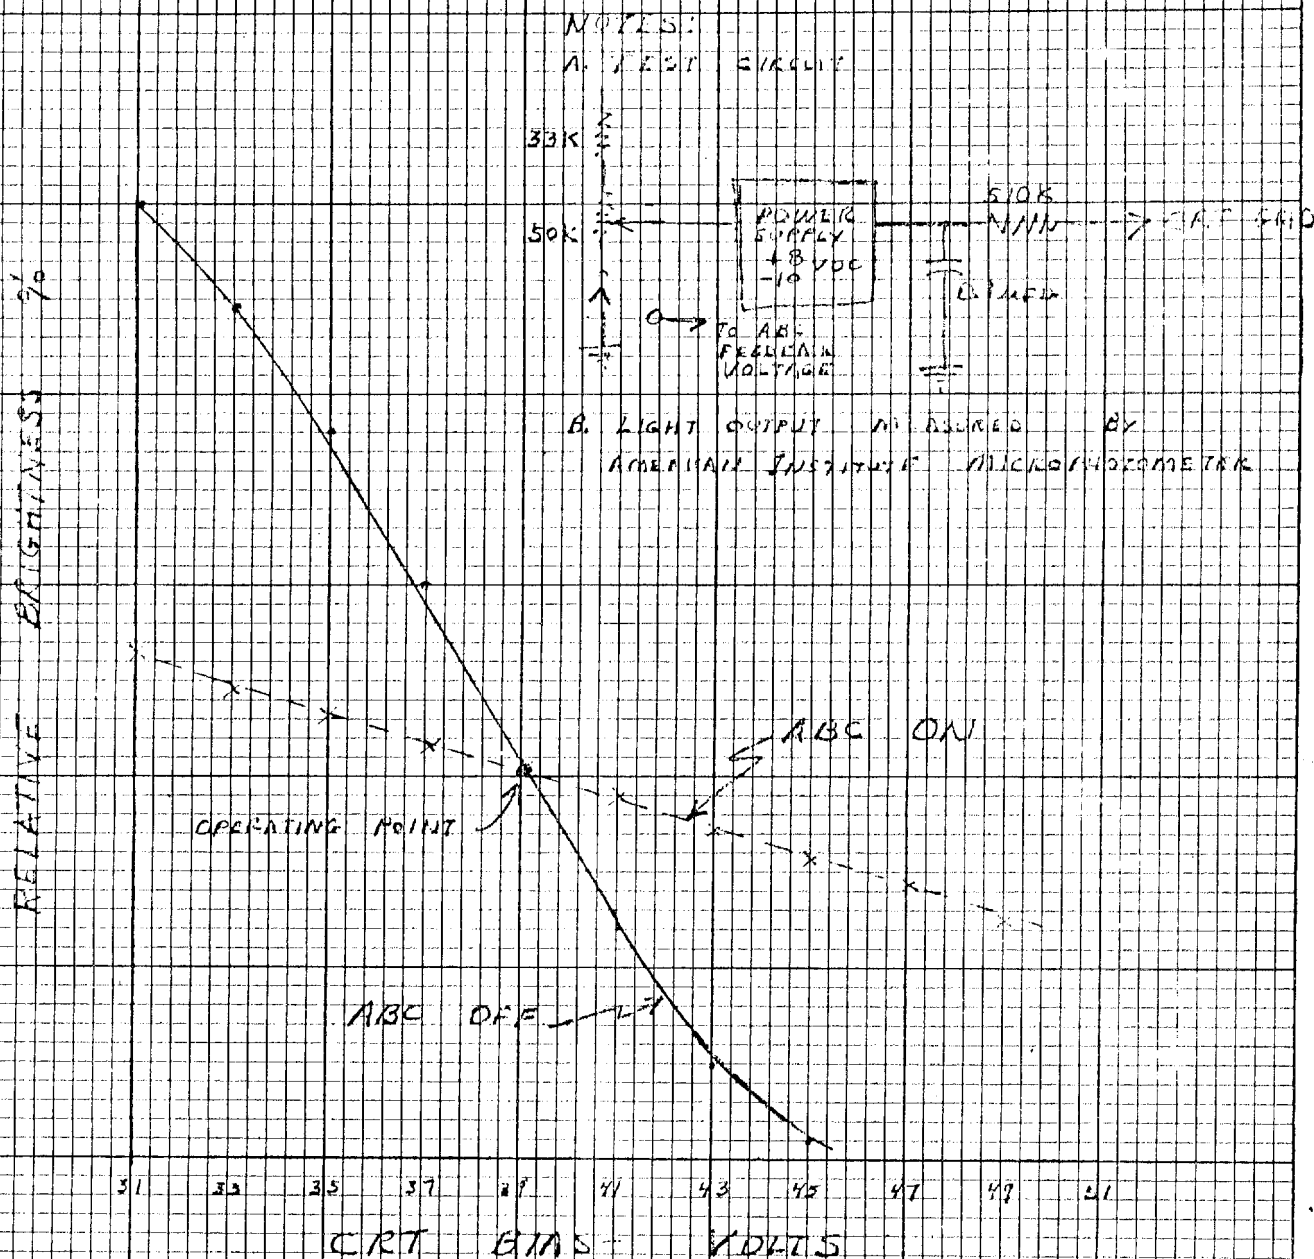 NOTES:
A. TEST CIRCUIT
33K
50K
POWER
SUPPLY
+8
-10 VDC
510K
CRT GRID
TO ABC
VOLTAGE
B. LIGHT OUTPUT MEASURED BY
AMERICAN INSTITUTE MICROPHOTOMETER
RELATIVE BRIGHTNESS %
ABC ON
OPERATING POINT
ABC OFF
31 33 35 37 39 41 43 45 47 49 51
CRT BIAS VOLTS